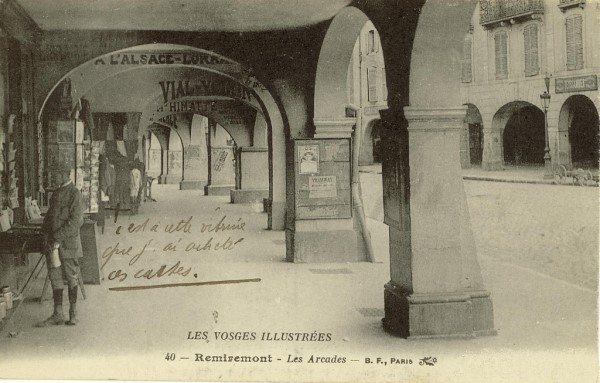 A L'ALSACE-LORRAINE
VIAL
c'est à cette vitrine
que j'ai acheté
ces cartes.
LES VOSGES ILLUSTRÉES
40 — Remiremont - Les Arcades — B. F., PARIS